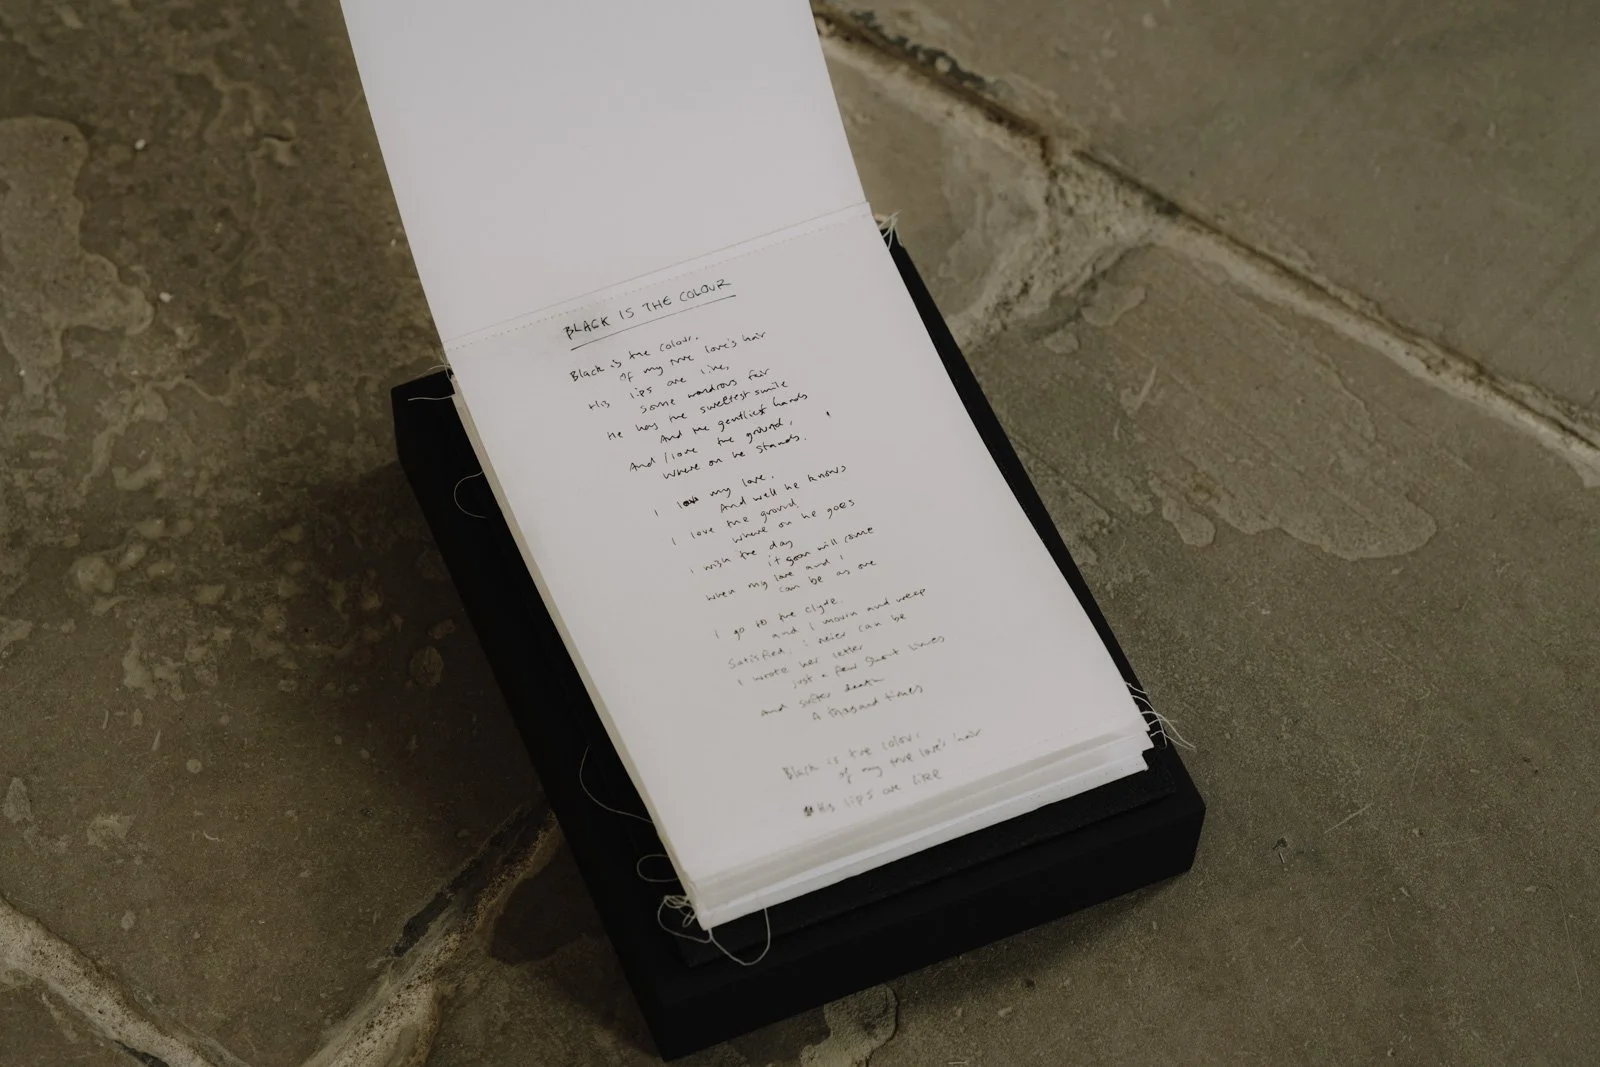 BLACK IS THE COLOUR
Black is the colour.
Of my true love's hair
His lips are like,
Some wondrous fair
He has the sweetest smile
And the gentliest hands
And I love the ground,
Where on he stands.
I love my love.
And well he knows
I love the ground.
Where on he goes
I wish the day
it soon will come
When my love and I
Can be as one
I go to the Clyde.
and I mourn and weep
Satisfied. I never can be
I wrote her letter
just a few short lines
And suffer death
A thousand times
Black is the colour.
of my true love's hair
His lips are like